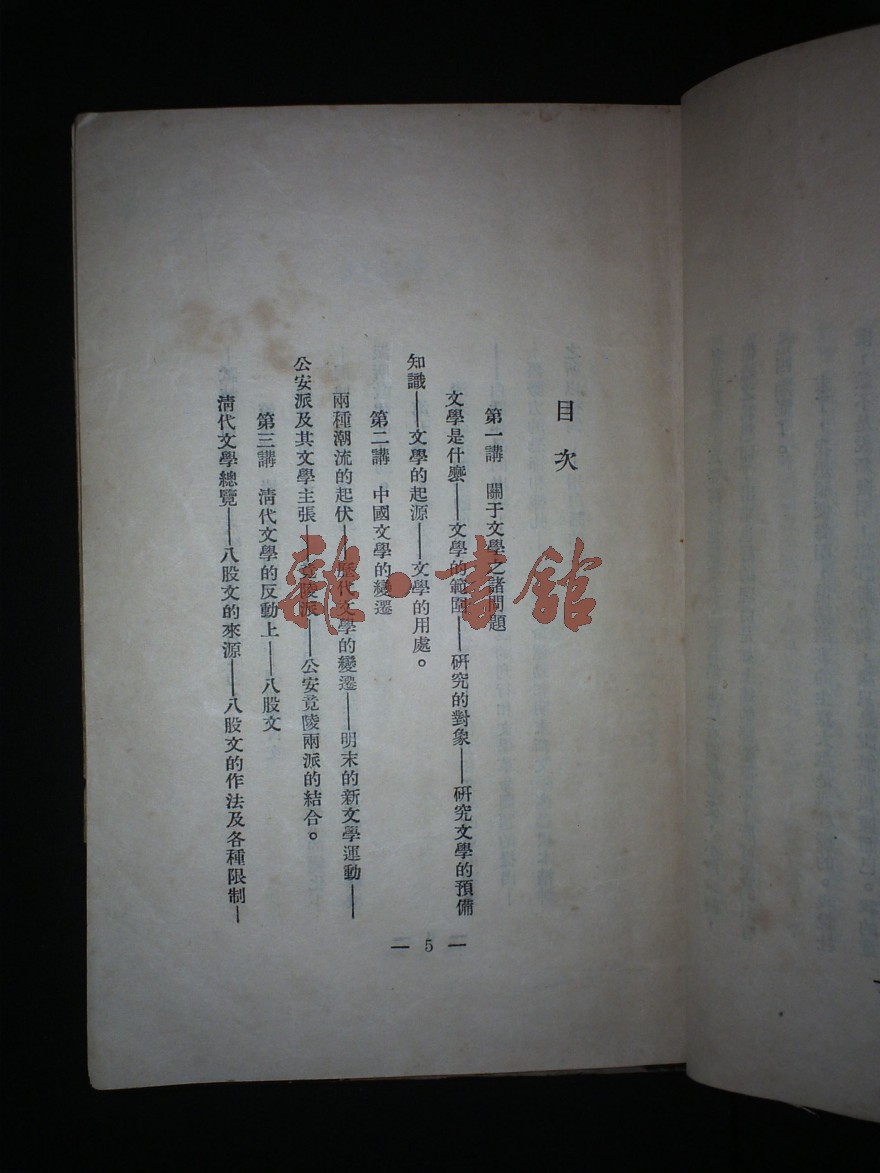 目次
第一講　關于文學之諸問題
文學是什麽——文學的範圍——研究的對象——研究文學的預備
知識——文學的起源——文學的用處。
第二講　中國文學的變遷
兩種潮流的起伏——歷代文學的變遷——明末的新文學運動——
公安派及其文學主張——竟陵派——公安竟陵兩派的結合。
第三講　淸代文學的反動上——八股文
淸代文學總覽——八股文的來源——八股文的作法及各種限制—
— 5 —
雜·書館